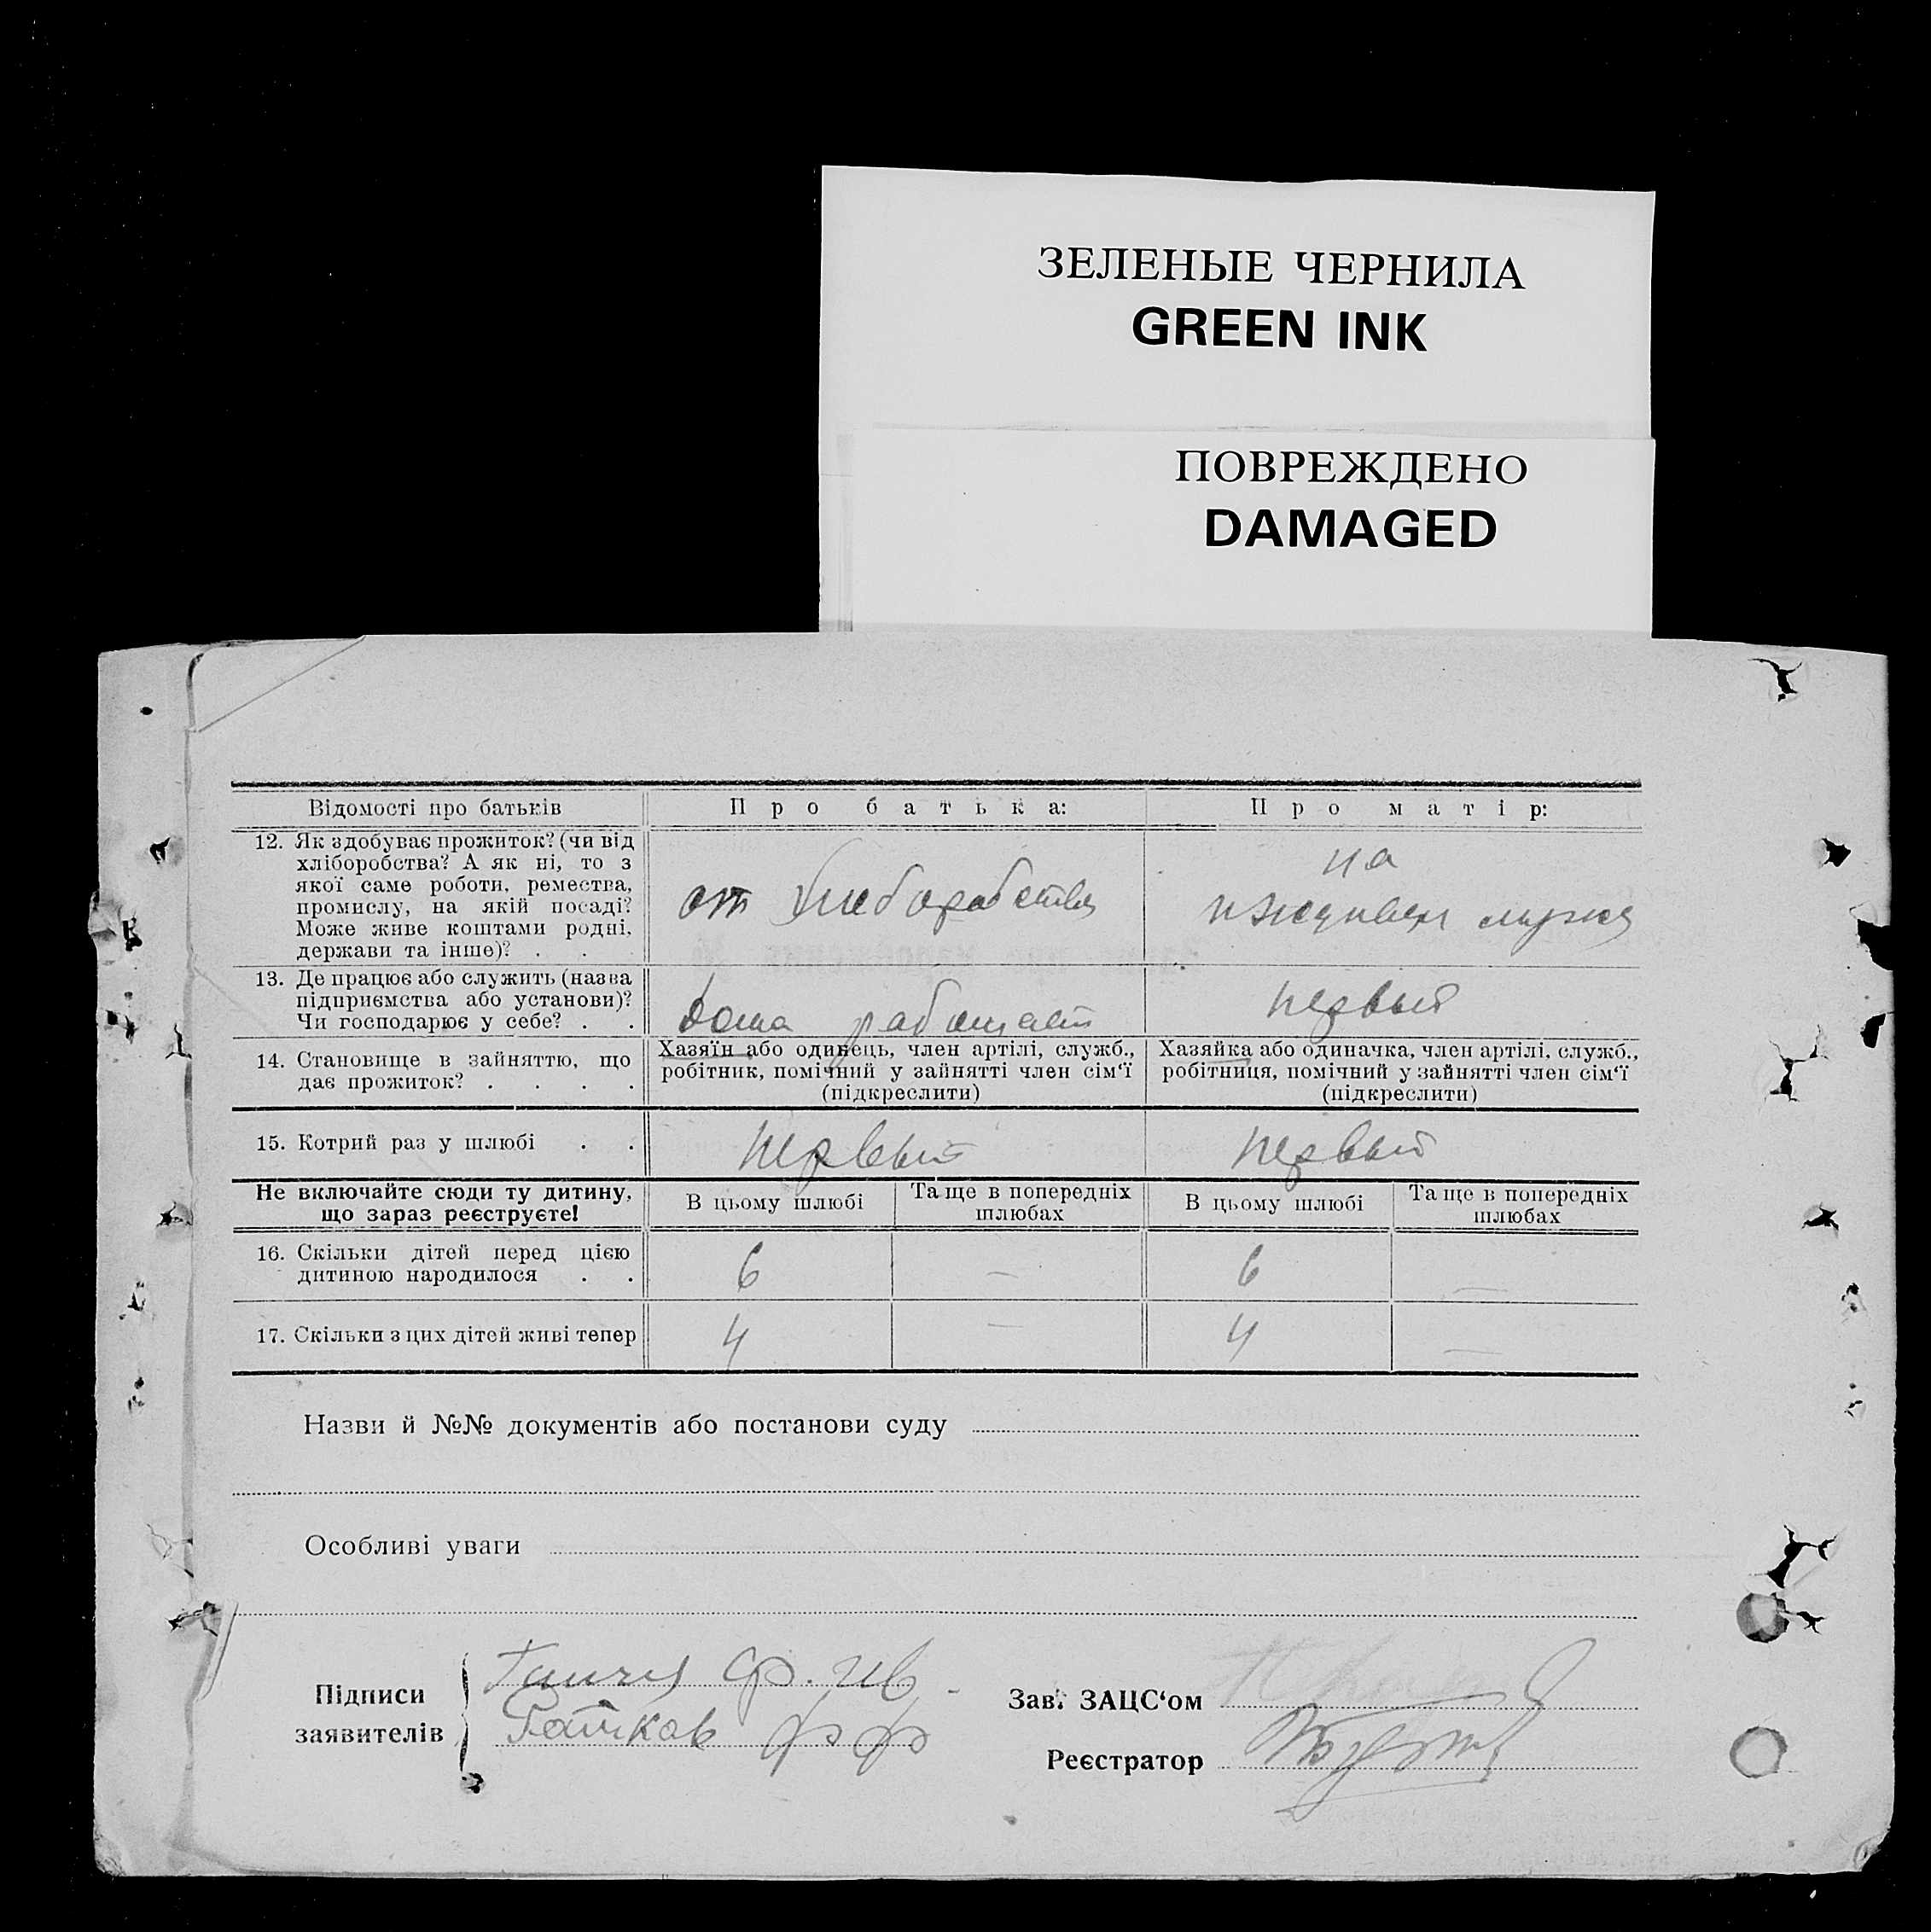 ЗЕЛЕНЫЕ ЧЕРНИЛА
GREEN INK
ПОВРЕЖДЕНО
DAMAGED
Відомості про батьків
Про батька:
Про матір:
12. Як здобуває прожиток? (чи від
хліборобства? А як ні, то з
якої саме роботи, ремества,
промислу, на якій посаді?
Може живе коштами родні,
держави та інше)? . .
от хлеборобства
на
мужа
13. Де працює або служить (назва
підприємства або установи)?
Чи господарює у себе? . .
дома работает
первый
14. Становище в зайняттю, що
дає прожиток? . . . .
Хазяїн або одинець, член артілі, служб.,
робітник, помічний у зайнятті член сім‘ї
(підкреслити)
Хазяйка або одиначка, член артілі, служб.,
робітниця, помічний у зайнятті член сім‘ї
(підкреслити)
15. Котрий раз у шлюбі . .
первый
первый
Не включайте сюди ту дитину,
що зараз реєструєте!
В цьому шлюбі
Та ще в попередніх
шлюбах
В цьому шлюбі
Та ще в попередніх
шлюбах
16. Скільки дітей перед цією
дитиною народилося . .
6
—
6
—
17. Скільки з цих дітей живі тепер
4
—
4
—
Назви й №№ документів або постанови суду
Особливі уваги
Підписи
заявителів
Зав. ЗАЦС‘ом
Реєстратор